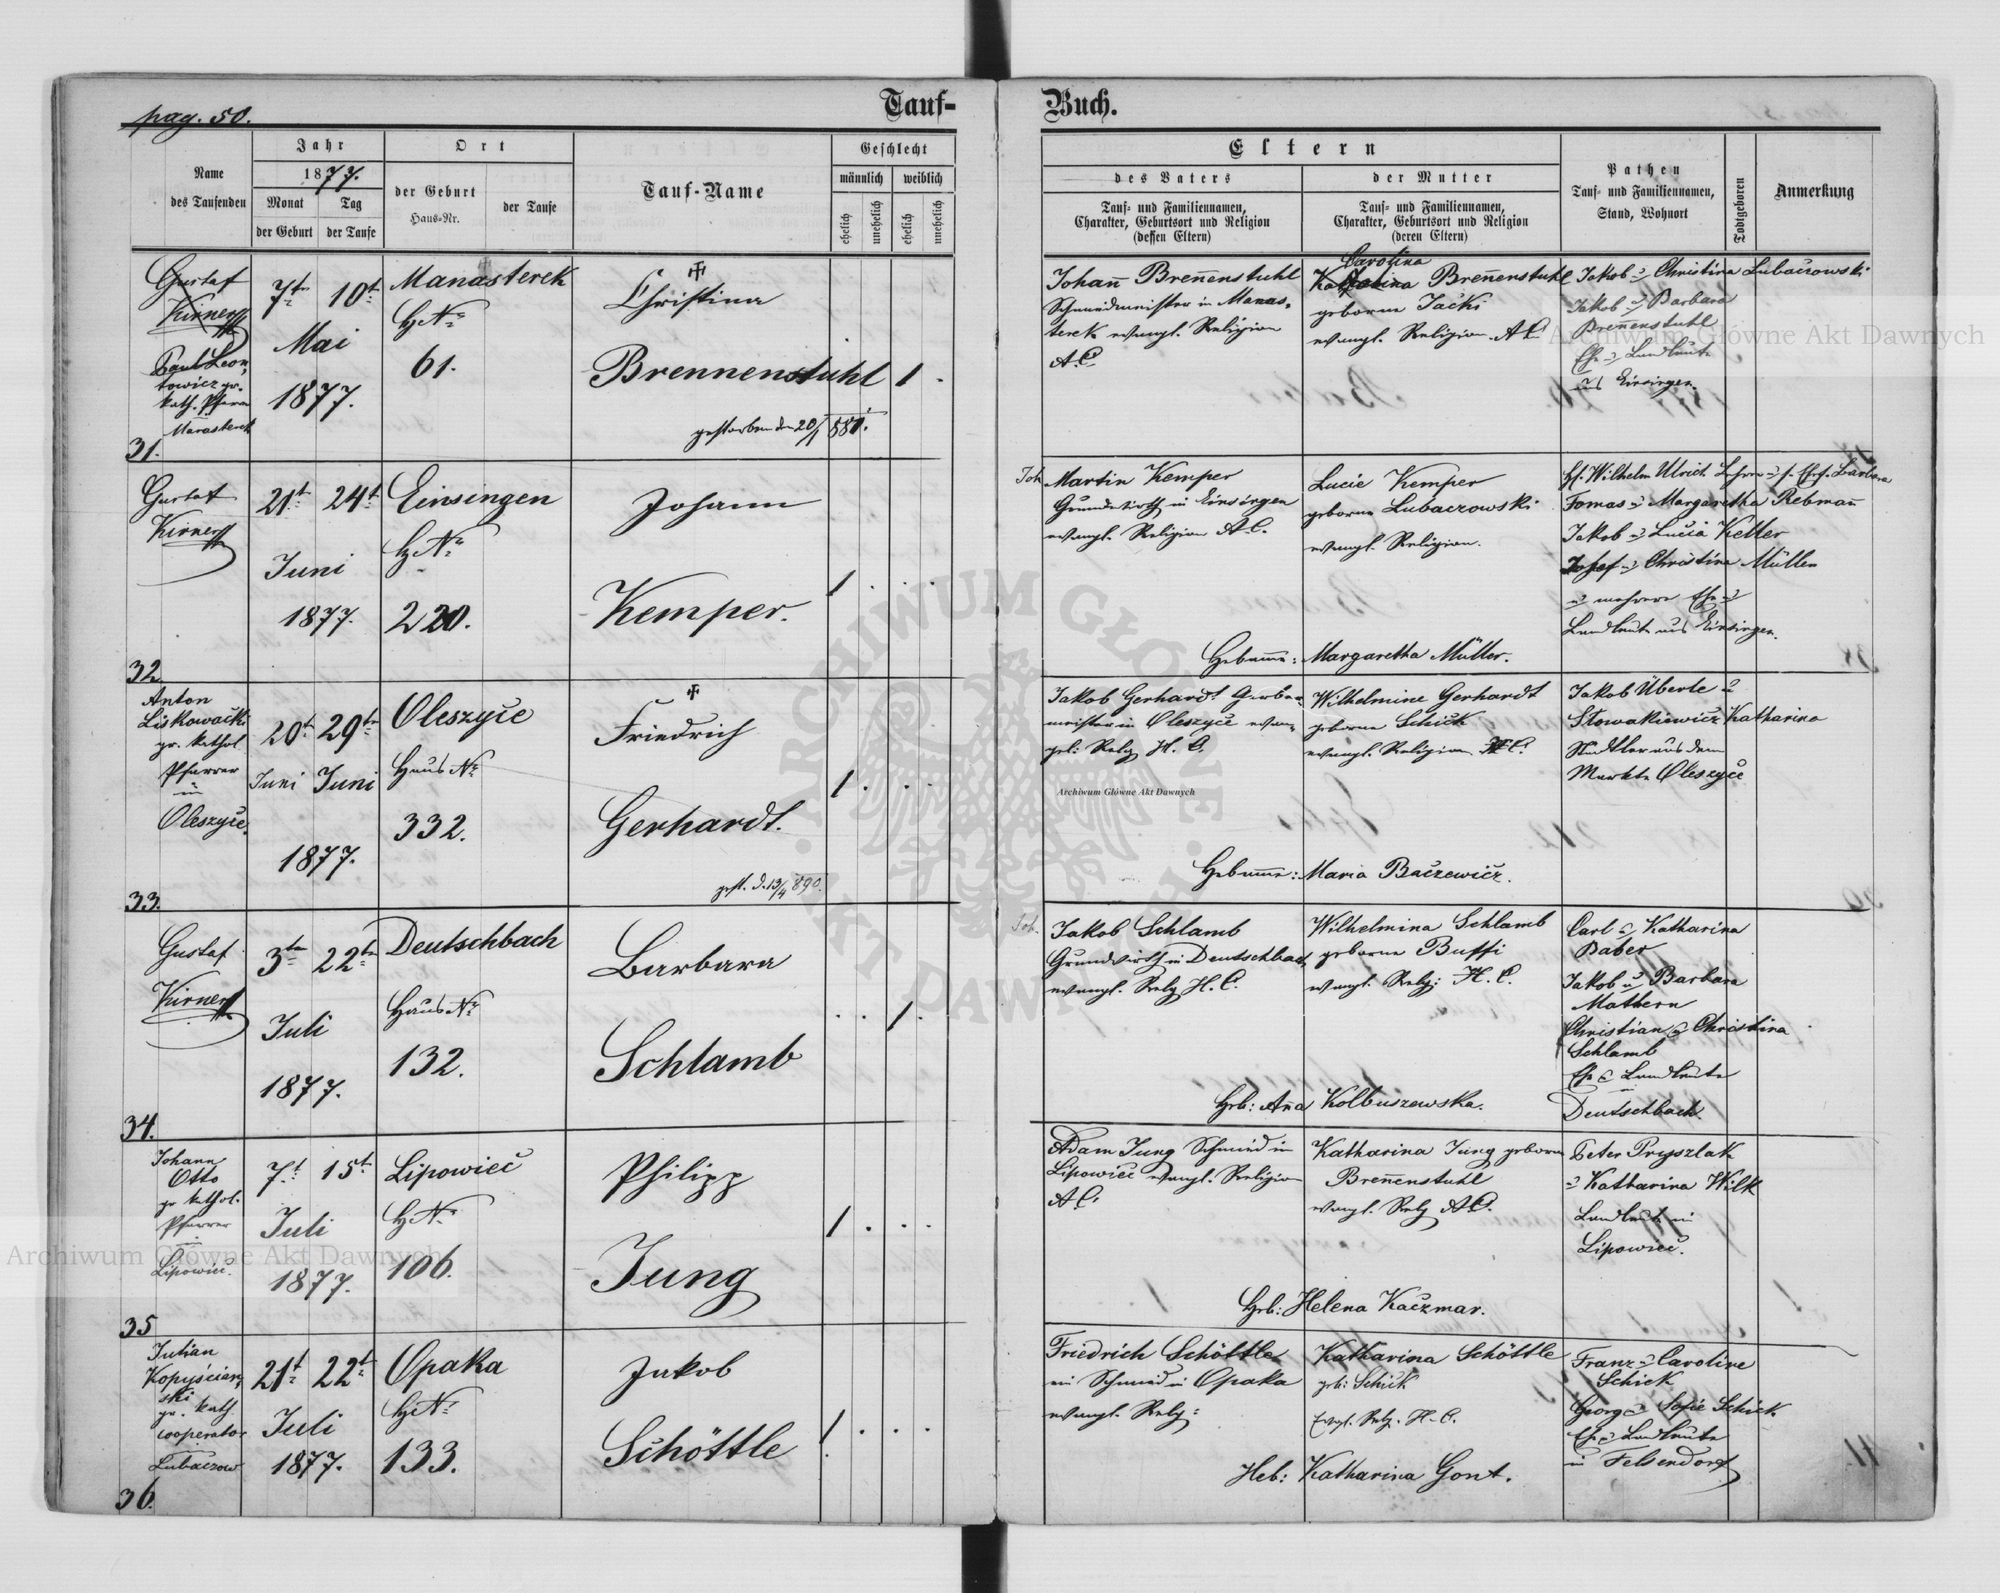 pag. 50.
Tauf-
Buch.
Name
des Taufenden
Jahr
1877.
Monat
der Geburt
Tag
der Taufe
Ort
der Geburt
Haus-Nr.
der Taufe
Tauf-Name
Geschlecht
männlich
weiblich
ehelich
unehelich
ehelich
unehelich
Eltern
des Vaters
Tauf- und Familiennamen,
Charakter, Geburtsort und Religion
(dessen Eltern)
der Mutter
Tauf- und Familiennamen,
Charakter, Geburtsort und Religion
(deren Eltern)
Pathen
Tauf- und Familiennamen,
Stand, Wohnort
Todtgeboren
Anmerkung
31.
Gustaf
Kirner
Paul Leon,
towicz gr.
kath. Pfarrer
Manasterek
7te 10t
Mai
1877.
Manasterek
HNr
61.
Christina
Brennenstuhl
1
gestorben den 20/1 881.
Johann Brenenstuhl
Schmiedmeister in Manas,
terek evangl. Religion
A.C.
Carolina
Katharina Brenenstuhl
geborne Jacki
evangl. Religion. AC.
Jakob u Christina Lubaczowski
Jakob u Barbara
Brenenstuhl
Ehe u Landleute
aus Einsingen.
32.
Gustaf
Kirner
21t 24t
Juni
1877.
Einsingen
HNr
220.
Johann
Kemper.
1
Joh
Martin Kemper
Grundwirth in Einsingen
evangl. Religion A.C.
Lucie Kemper
geborne Lubaczowski
evangl. Religion.
H. Wilhelm Ulrich Lehrer u s. Ehef. Barbara
Tomas u Margaretha Rebman
Jakob u Lucia Keller
Josef u Christina Müller
u mehrere Ehe u
Landleute aus Einsingen.
Hebamme: Margaretha Müller.
33.
Anton
Liskowacki
gr. kathol
Pfarrer
in
Oleszyce.
20t 29te
Juni Juni
1877.
Oleszyce
Haus Nr
332.
Friedrich
Gerhardt.
1
gest. d. 13/4 890.
Jakob Gerhardt Gerber,
meister in Oleszyce evan,
gel: Relg H. C.
Wilhelmine Gerhardt
geborne Schick
evangl. Religion H.C.
Jakob Überle u
Stowakiewicz Katharina
Städtler aus dem
Markte Oleszyce
Hebamme: Maria Baczewicz.
34.
Gustaf
Kirner
3te 22te
Juli
1877.
Deutschbach
Haus Nr
132.
Barbara
Schlamb
1
Joh.
Jakob Schlamb
Grundwirth in Deutschbach
evangl. Relg H.C.
Wilhelmina Schlamb
geborne Buffi
evangl. Relg: H. C.
Carl u Katharina
Daber
Jakob u Barbara
Mathern
Christian u Christina
Schlamb
Ehe u Landleute
in
Deutschbach
Heb: Ana Kolbuszewska.
35
Johann
Otto
gr kathol.
Pfarrer
in
Lipowiec.
7t 15t
Juli
1877.
Lipowiec
HNr
106.
Philipp
Jung
1
Adam Jung Schmied in
Lipowiec evangl. Religion
A.C.
Katharina Jung geborne
Brenenstuhl
evangl. Relg A.C.
Peter Pryszlak
u Katharina Wilk
Landleute in
Lipowiec.
Heb: Helena Kaczmar.
36.
Julian
Kopyścien,
ski
gr. kath.
cooperator
Lubaczow
21t 22t
Juli
1877.
Opaka
HNr
133.
Jakob
Schöttle
1
Friedrich Schöttle
ein Schmied in Opaka
evangl. Relg:
Katharina Schöttle
geb: Schick
Evgl. Relg. H.C.
Franz u Caroline
Schick
Georg u Sofie Schick
Ehe u Landleute
in Felsendorf
Heb: Katharina Gont.
Archiwum Główne Akt Dawnych
Archiwum Główne Akt Dawnych
Archiwum Główne Akt Dawnych
ARCHIWUM GŁÓWNE AKT DAWNYCH